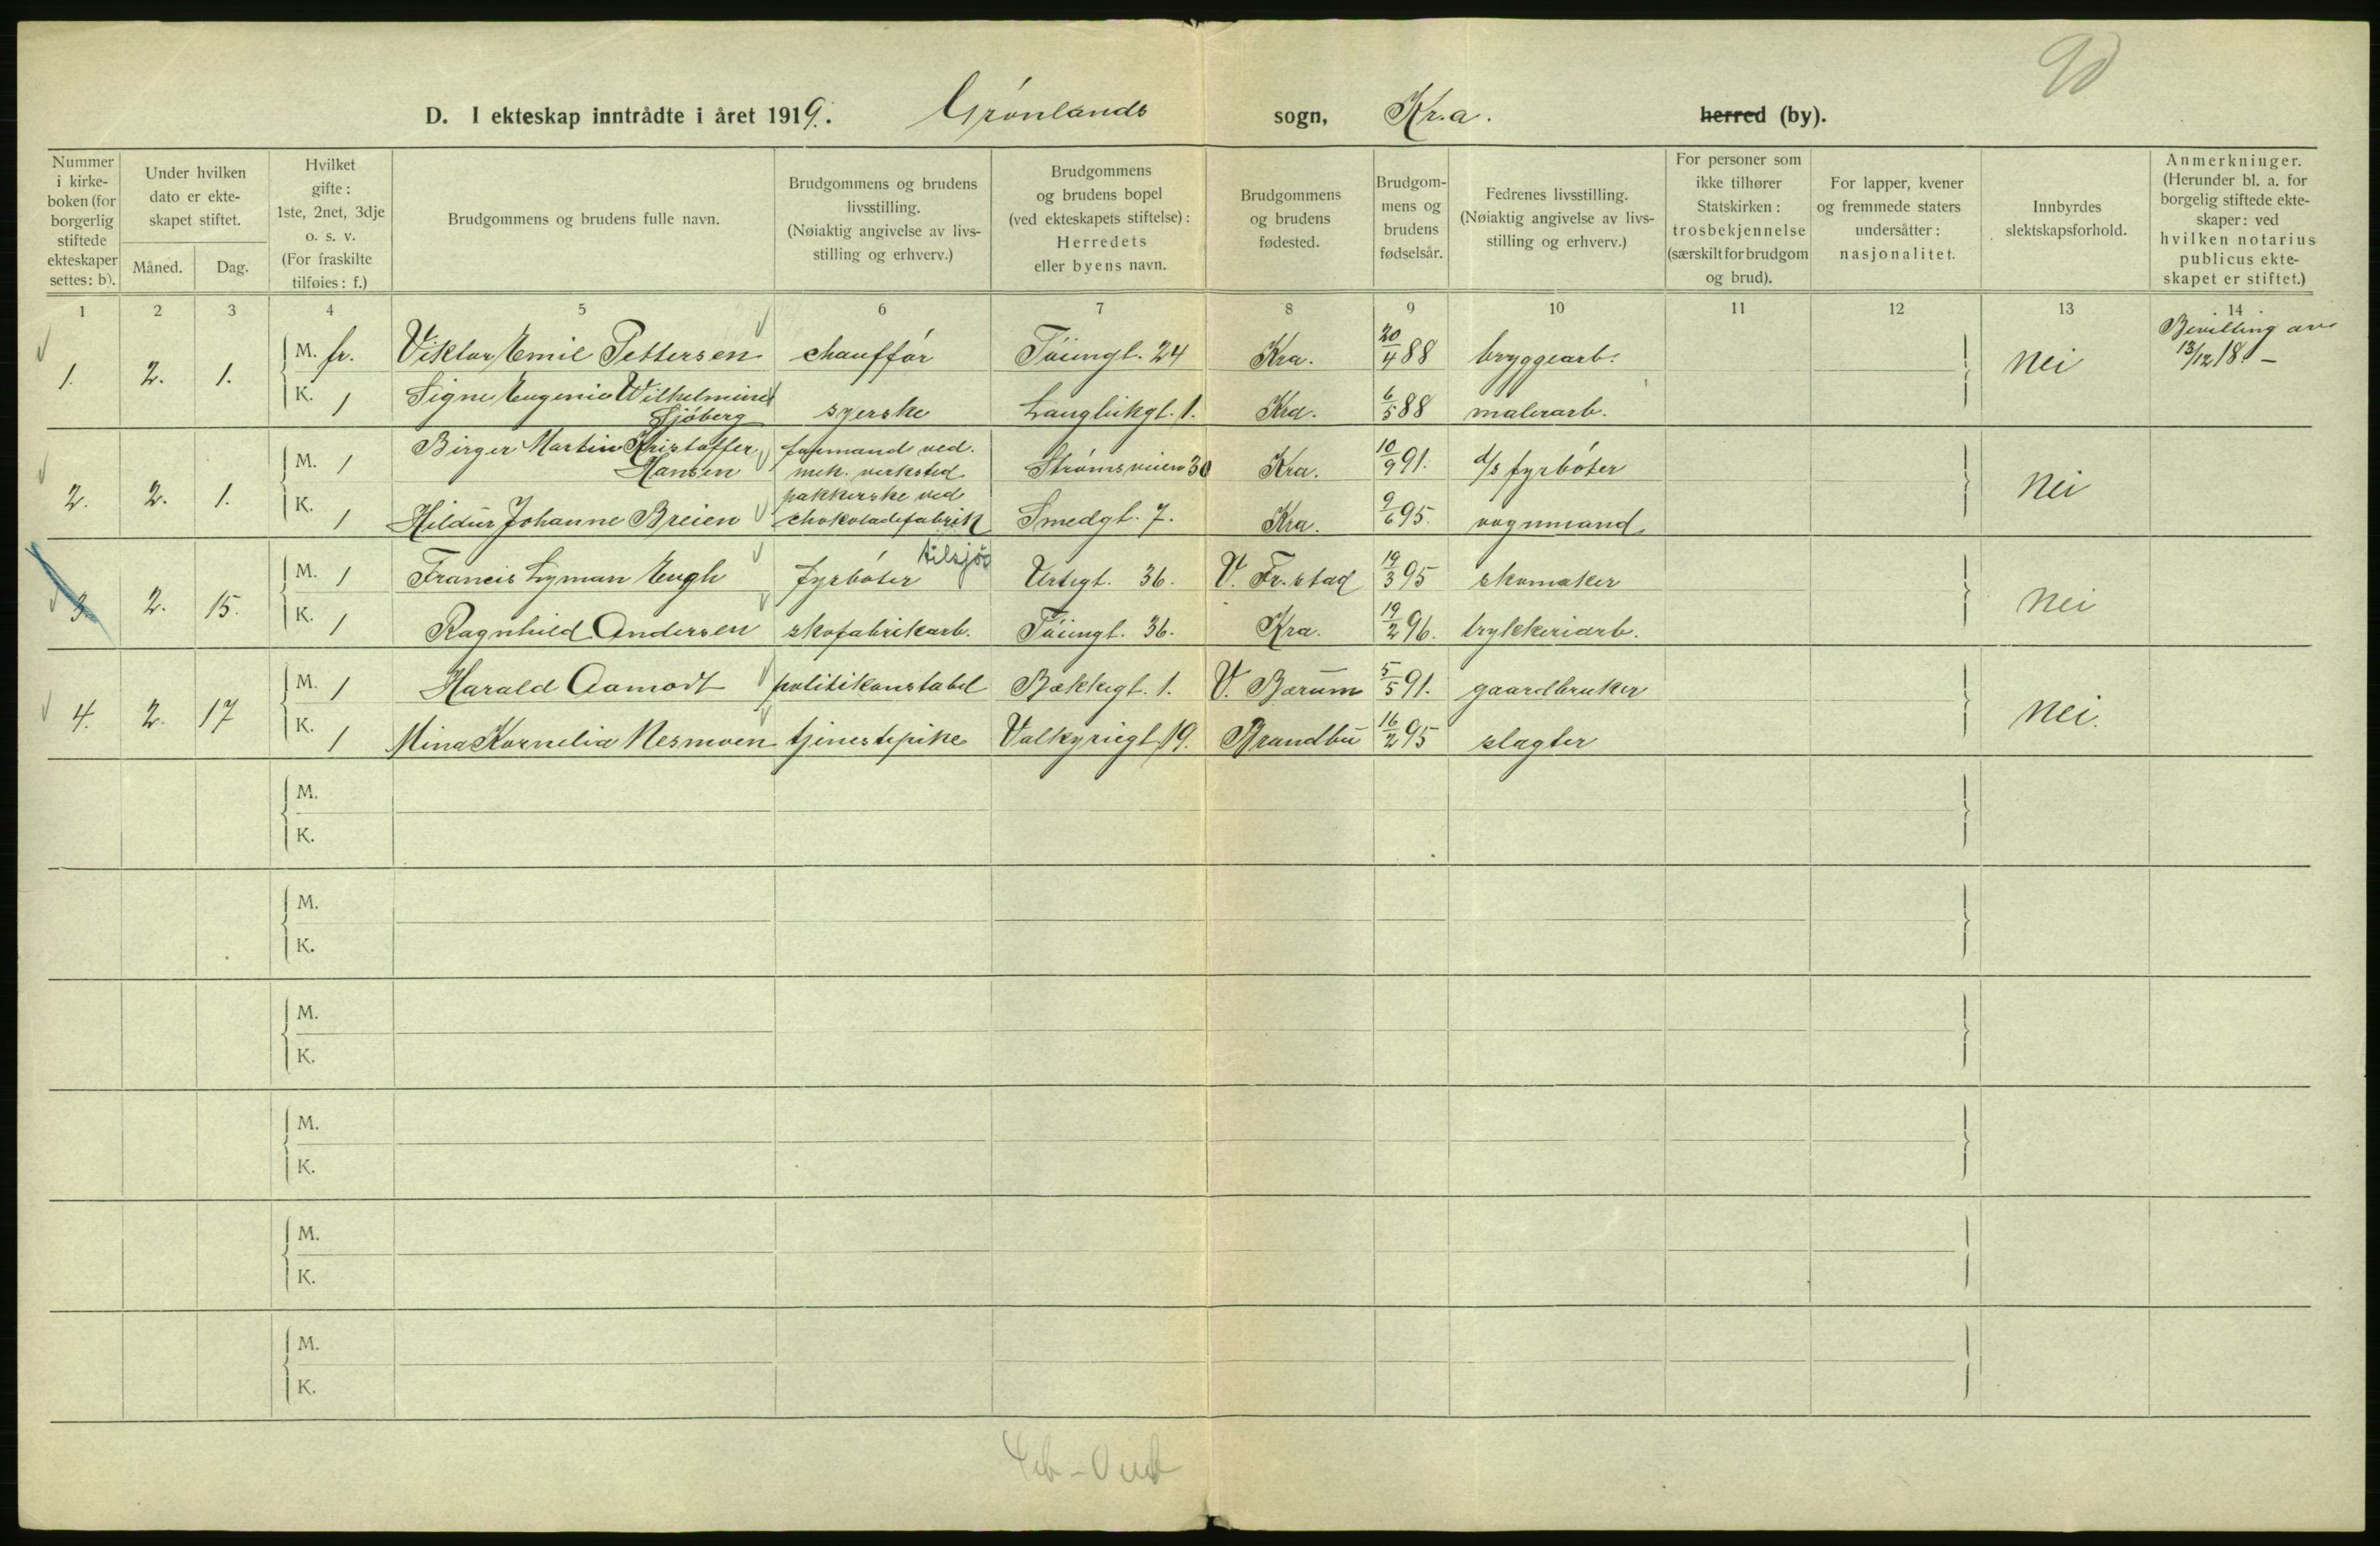 D. I ekteskap inntrådte i året 1919. Grønlands sogn, Kr.a. herred (by).
Nummer i kirkeboken (for borgerlig stiftede ekteskaper settes: b).
Under hvilken dato er ekteskapet stiftet.
Måned. Dag.
Hvilket gifte: 1ste, 2net, 3dje o. s. v. (For fraskilte tilføies: f.)
Brudgommens og brudens fulle navn.
Brudgommens og brudens livsstilling. (Nøiaktig angivelse av livsstilling og erhverv.)
Brudgommens og brudens bopel (ved ekteskapets stiftelse): Herredets eller byens navn.
Brudgommens og brudens fødested.
Brudgommens og brudens fødselsår.
Fedrenes livsstilling. (Nøiaktig angivelse av livsstilling og erhverv.)
For personer som ikke tilhører Statskirken: trosbekjennelse (særskilt for brudgom og brud).
For lapper, kvener og fremmede staters undersåtter: nasjonalitet.
Innbyrdes slektskapsforhold.
Anmerkninger. (Herunder bl. a. for borgelig stiftede ekteskaper: ved hvilken notarius publicus ekteskapet er stiftet.)
1 2 3 4 5 6 7 8 9 10 11 12 13 14
1. 2. 1. M. fr. Viktor Emil Pettersen chauffør Tøiengt. 24 Kra. 20/4 88 bryggearb. Nei Bevilling av 13/12 18. —
K. 1 Signe Eugenie Wilhelmine Sjöberg syerske Langleikgt. 1. Kra. 6/5 88 malerarb.
2. 2. 1. M. 1 Birger Martin Kristoffer Hansen formand ved mek. verksted Strømsveien 30 Kra. 10/9 91. d/s fyrbøter Nei
K. 1 Hildur Johanne Breien pakkerske ved chokoladefabrik Smedgt. 7. Kra. 9/6 95. vognmand
3. 2. 15. M. 1 Francis Lyman Engh fyrbøter tilsjøs Urtegt. 36. V. Fr.stad 19/3 95 skomaker Nei
K. 1 Ragnhild Andersen skofabrikarb. Tøiengt. 36. Kra. 19/2 96. trykkeriarb.
4. 2. 17 M. 1 Harald Aamodt politikonstabel Bækkegt. 1. V. Bærum 5/5 91. gaardbruker Nei.
K. 1 Mina Kornelia Nesmoen tjenestepike Valkyriegt. 19. Brandbu 16/2 95 slagter
M.
K.
M.
K.
M.
K.
M.
K.
M.
K.
M.
K.